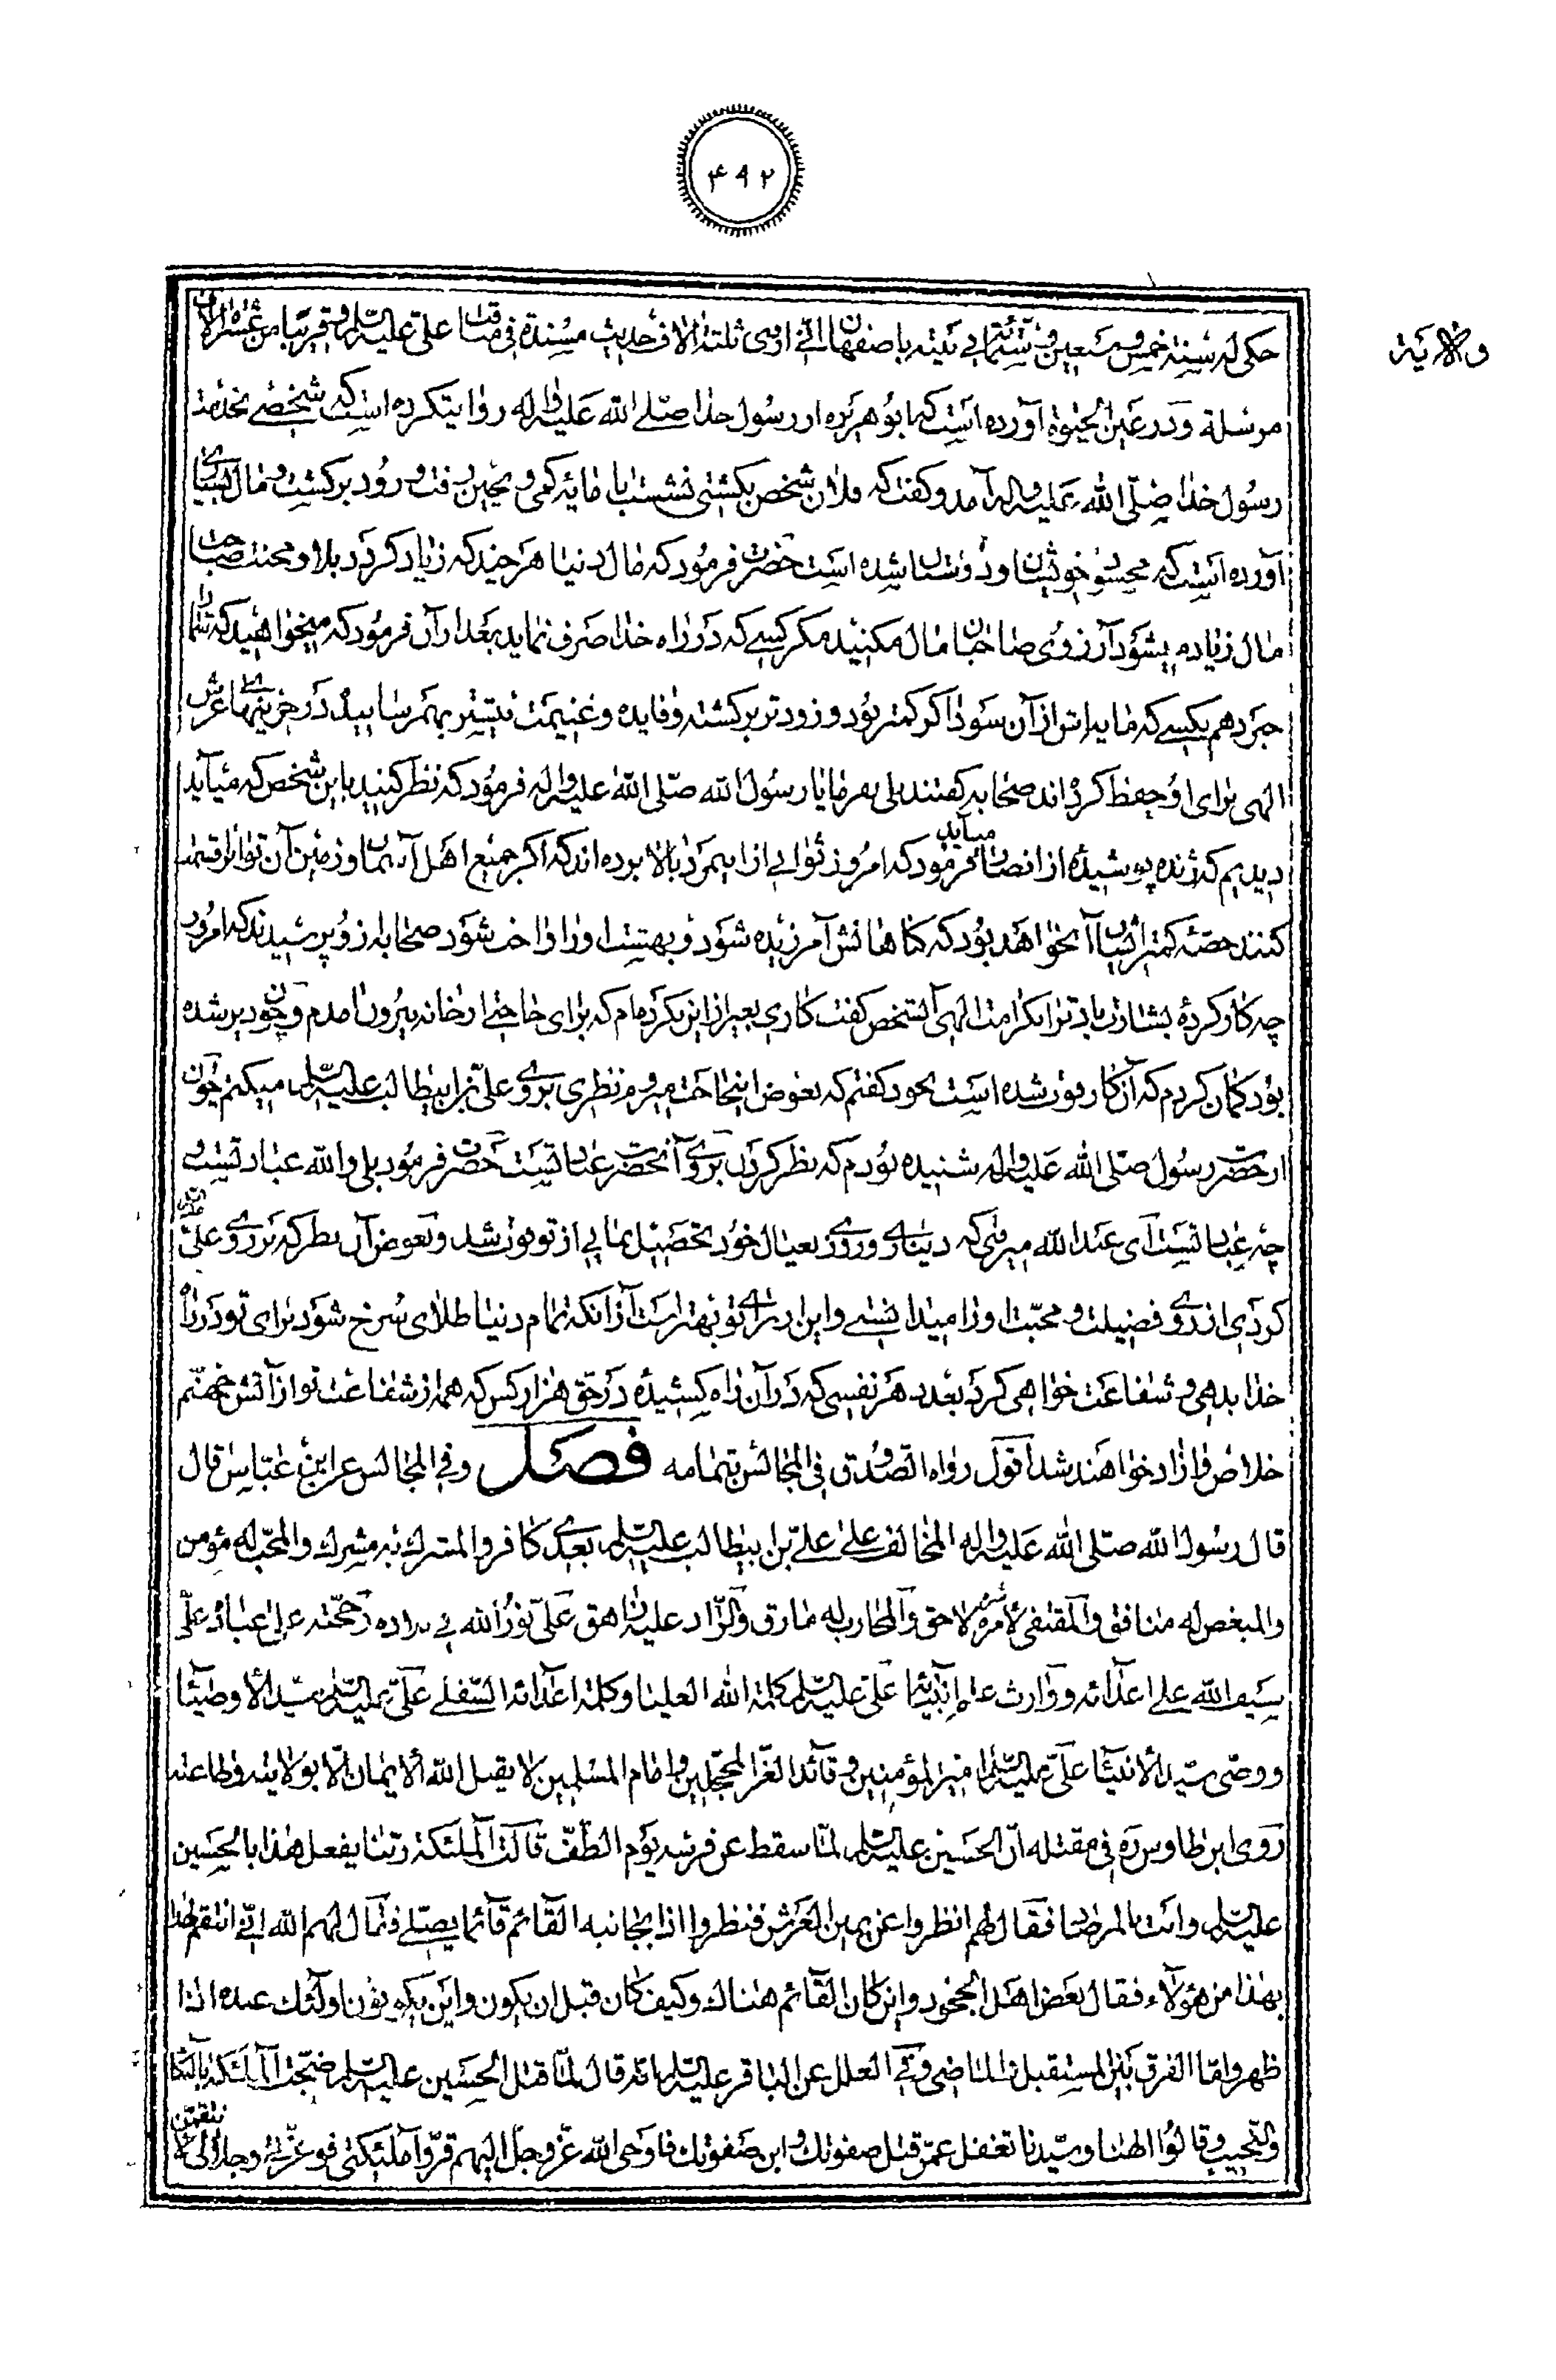 ۴۹۲
ولاية
حكى له سنة خمس وسبعين وستمائة في بيته باصفهان انّي اروى ثلثة الاف حديث مسندة في مناقب علىّ عليه السلم وقريبا من عشرة الاف
مرسلة ودر عين الحيوة آورده است كه ابو هريره از رسول خدا صلّى الله عليه واله روايت كرده است كه شخصى بخدمت
رسول خدا صلّى الله عليه واله آمد و كفت كه فلان شخص بكشتى نشست با مايه كمى و بچين رفت و زود بركشت و مال بسيارى
آورده است كه محسود خويشان و دوستان شده است حضرت فرمود كه مال دنيا هر چند كه زياد كردد بلا و محنت صاحب
مال زياده ميشود آرزوى صاحبان مال مكنيد مكر كسى كه در راه خدا صرف نمايد بعد از آن فرمود كه ميخواهيد كه شما را
خبر دهم بكسى كه مايه اش از آن سوداكر كمتر بود و زودتر بركشته و فايده و غنيمت بيشتر بهم رسانيده در خزينهاى عرش
الهى براى او حفظ كرده اند صحابه كفتند بلى بفرما يا رسول الله صلّى الله عليه واله فرمود كه نظر كنيد باين شخص كه ميآيد
ديديم كه ژنده پوشيده از انصار ميآيد فرمود كه امروز ثوابى از اينمرد بالا برده اند كه اكر جميع اهل آسمان و زمين آن ثواب را قسمت
كنند حصّه كمتر ايشان آن خواهد بود كه كناهانش آمرزيده شود و بهشت او را واجب شود صحابه از او پرسيدند كه امروز
چه كار كردهٔ بشارت باد ترا بكرامت الهى آنشخص كفت كارى بغير از اين نكرده ام كه براى حاجتى از خانه بيرون آمدم و چون دير شده
بود كمان كردم كه آن كار فوت شده است بخود كفتم كه بعوض اينحاجت ميروم نظرى بروى علىّ بن ابيطالب عليه السلم ميكنم چون
از حضرت رسول صلّى الله عليه واله شنيده بودم كه نظر كردن بروى آنحضرت عبادتست حضرت فرمود بلى والله عبادتست و
چه عبادتست اى عبد الله ميرفتى كه دينارى و روزى بعيال خود تحصيل نمائى از تو فوت شد و بعوض آن نظر كه بروى علىّ عليه السلم
كردى از روى فضيلت و محبّت او را ميدانستى و اين از براى تو بهتر است از آنكه تمام دنيا طلاى سرخ شود براى تو در راه
خدا بدهى و شفاعت خواهى كرد بعدد هر نفسى كه در آن راه كشيدهٔ در حقّ هزار كس كه همه از شفاعت تو از آتش جهنّم
خلاص و ازاد خواهند شد اقول رواه الصّدوق في المجالس بتمامه فصل وفي المجالس عن ابن عبّاس قال
قال رسول الله صلّى الله عليه واله المخالف على علىّ بن ابيطالب عليه السلم بعدى كافر والمشرك به مشرك والمحبّ له مؤمن
والمبغض له منافق والمقتفى لأمره لاحق والمحارب له مارق والرّاد عليه زاهق علىّ نور الله في بلاده وحجّته على عباده علىّ
سيف الله على اعدائه ووارث علم انبيائه علىّ عليه السلم كلمة الله العليا وكلمة اعدائه السّفلى علىّ عليه السلم سيّد الأوصيآء
ووصىّ سيّد الأنبيآء علىّ عليه السلم امير المؤمنين وقآئد الغرّ المحجّلين وامام المسلمين لا يقبل الله الأيمان الّا بولايته وطاعته
روى ابن طاوس ره في مقتله انّ الحسين عليه السلم لمّا سقط عن فرسه يوم الطّفّ قالت الملئكة ربّنا يفعل هذا بالحسين
عليه السلم وانت بالمرصاد فقال لهم انظروا عن يمين العرش فنظروا اذا بجانبه القآئم قآئما يصلّى فقال لهم الله انّي انتقم لهذا
بهذا من هؤلآء فقال بعض اهل الجحود واين كان القآئم هناك وكيف كان قبل ان يكون
ظهر واما الفرق بين المستقبل والماضى وفي العلل عن الباقر عليه السلم انّه قال لمّا قتل الحسين عليه السلم ضجّت الملئكة بالبكآء
والنّحيب وقالوا الهنا وسيّدنا تغفل عمّن قتل صفوتك وابن صفوتك فاوحى الله عزّ وجلّ اليهم قرّوا ملئكتى فوعزّتى وجلالى لأنتقمنّ